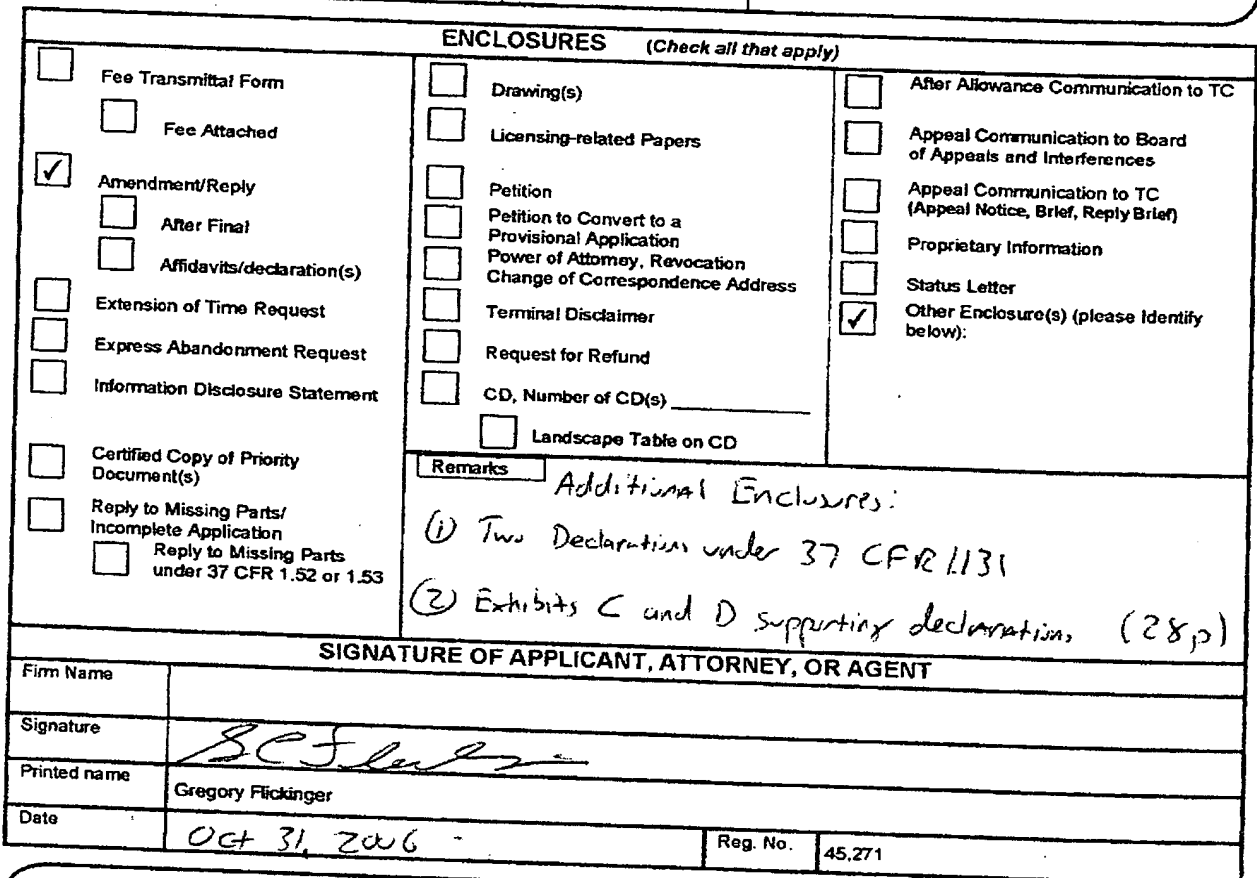 ENCLOSURES (Check all that apply)
Fee Transmittal Form
Fee Attached
✓ Amendment/Reply
After Final
Affidavits/declaration(s)
Extension of Time Request
Express Abandonment Request
Information Disclosure Statement
Certified Copy of Priority
Document(s)
Reply to Missing Parts/
Incomplete Application
Reply to Missing Parts
under 37 CFR 1.52 or 1.53
Drawing(s)
Licensing-related Papers
Petition
Petition to Convert to a
Provisional Application
Power of Attorney, Revocation
Change of Correspondence Address
Terminal Disclaimer
Request for Refund
CD, Number of CD(s)
Landscape Table on CD
After Allowance Communication to TC
Appeal Communication to Board
of Appeals and Interferences
Appeal Communication to TC
(Appeal Notice, Brief, Reply Brief)
Proprietary Information
Status Letter
✓ Other Enclosure(s) (please Identify
below):
Remarks
Additional Enclosures:
(1) Two Declarations under 37 CFR 1.131
(2) Exhibits C and D supporting declarations (28p)
SIGNATURE OF APPLICANT, ATTORNEY, OR AGENT
Firm Name
Signature
Printed name
Gregory Flickinger
Date
Oct 31, 2006
Reg. No.
45,271